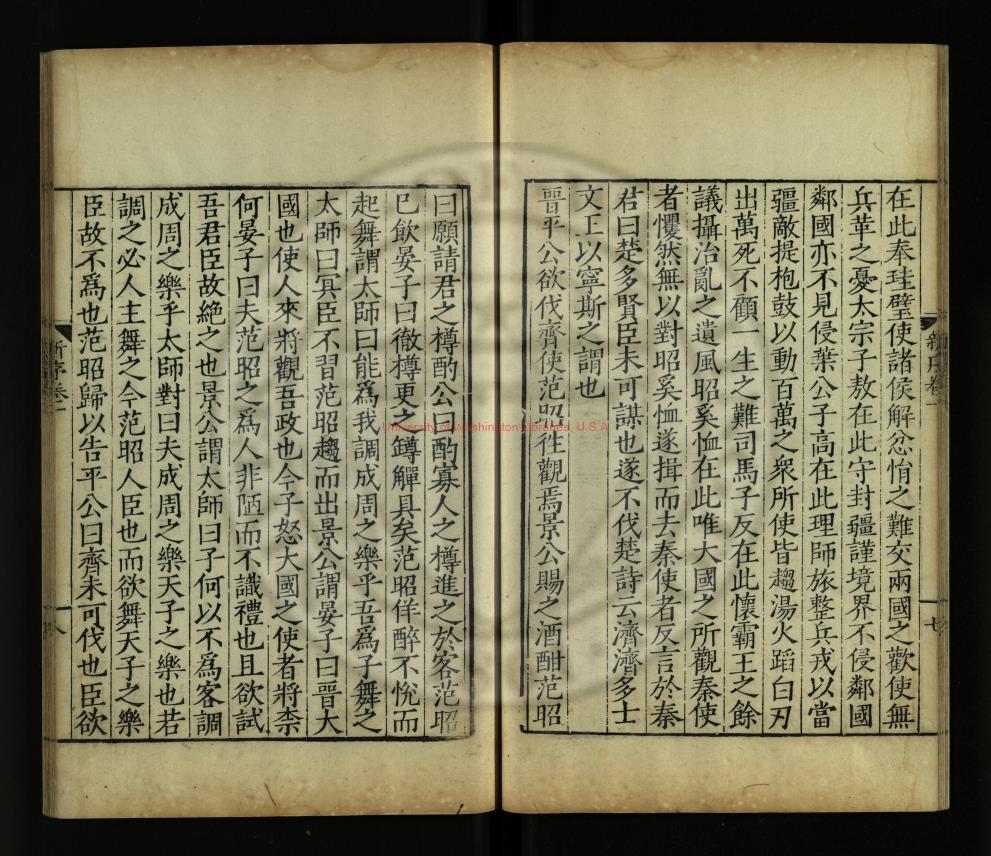 在此奉珪璧使諸侯解忿悁之難交兩國之歡使無
兵革之憂太宗子敖在此守封疆謹境界不侵鄰國
鄰國亦不見侵葉公子高在此理師旅整兵戎以當
疆敵提枹鼓以動百萬之衆所使皆趨湯火蹈白刃
出萬死不顧一生之難司馬子反在此懷霸王之餘
議攝治亂之遺風昭奚恤在此唯大國之所觀秦使
者懼然無以對昭奚恤遂揖而去秦使者反言於秦
君曰楚多賢臣未可謀也遂不伐楚詩云濟濟多士
文王以寧斯之謂也
晉平公欲伐齊使范昭徃觀焉景公賜之酒酣范昭
新序卷一
七
曰願請君之樽酌公曰酌寡人之樽進之於客范昭
已飲晏子曰徹樽更之罇觶具矣范昭佯醉不悅而
起舞謂太師曰能爲我調成周之樂乎吾爲子舞之
太師曰冥臣不習范昭趨而出景公謂晏子曰晉大
國也使人來將觀吾政也今子怒大國之使者將柰
何晏子曰夫范昭之爲人非陋而不識禮也且欲試
吾君臣故絶之也景公謂太師曰子何以不爲客調
成周之樂乎太師對曰夫成周之樂天子之樂也若
調之必人主舞之今范昭人臣也而欲舞天子之樂
臣故不爲也范昭歸以告平公曰齊未可伐也臣欲
新序卷一
八
University of Washington Libraries, U.S.A